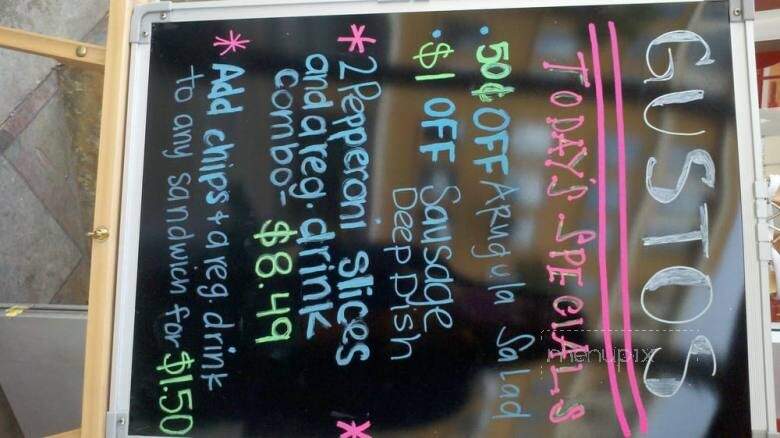 GUSTOS
TODAY'S SPECIALS
.50¢ OFF Arugula Salad
.$1 OFF Sausage
Deep Dish
* 2 Pepperoni slices *
and a reg. drink
combo- $8.49
* Add chips + a reg. drink
to any sandwich for $1.50
menupix